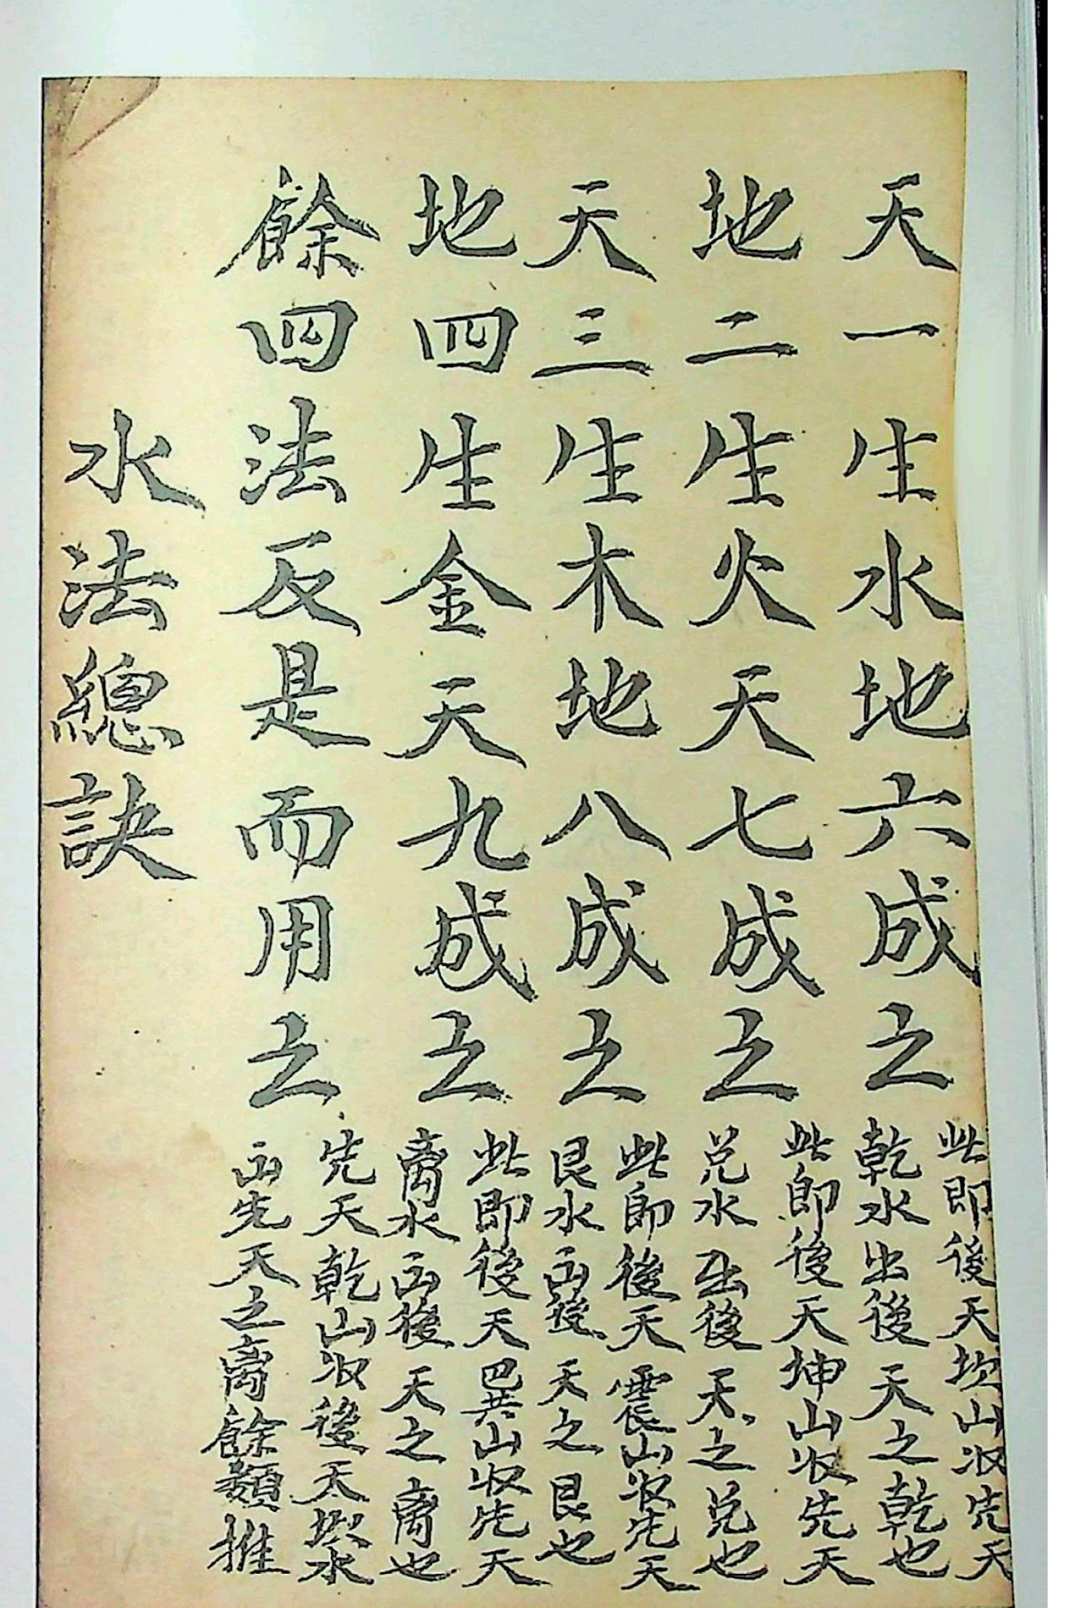 天一生水地六成之
此即後天坎山收先天
乾水出後天之乾也
地二生火天七成之
此即後天坤山收先天
兌水出後天之兌也
天三生木地八成之
此即後天震山收先天
艮水出後天之艮也
地四生金天九成之
此即後天巽山收先天
離水出後天之離也
餘四法反是而用之
先天乾山收後天坎水
出先天之離餘類推
水法總訣